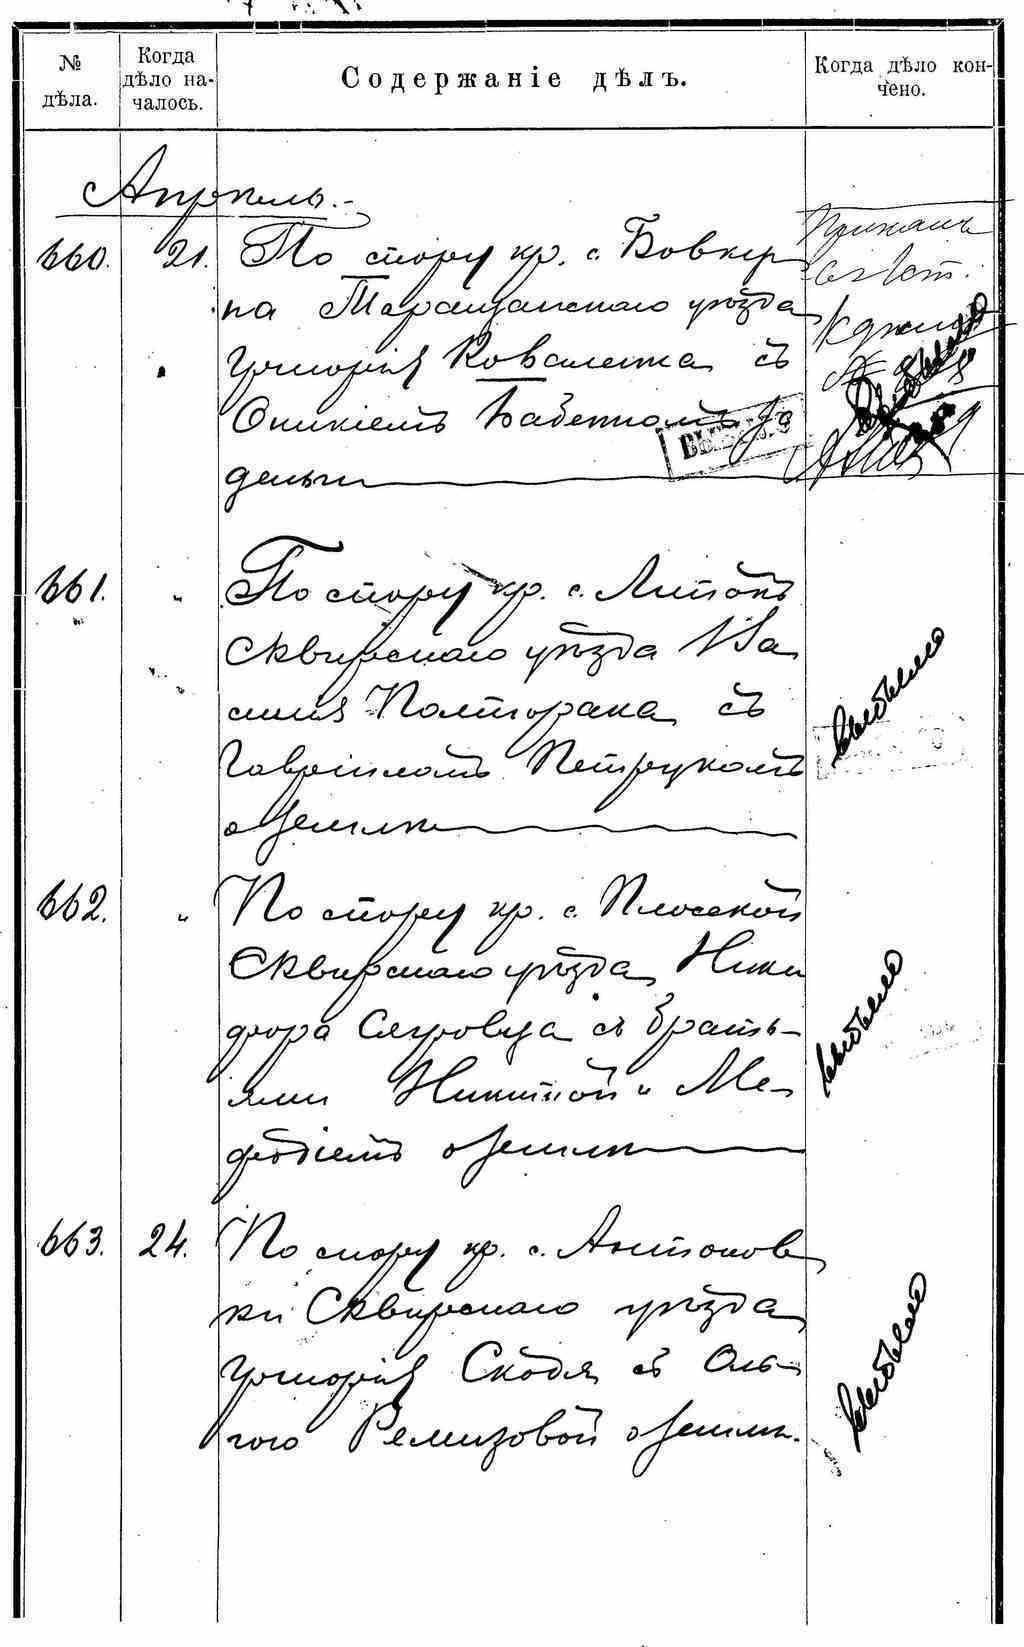 № дѣла.
Когда дѣло началось.
Содержаніе дѣлъ.
Когда дѣло кончено.
Апрѣль.
660. 21. По спору кр. с. Бовкун
на Таращанскаго уѣзда
Григорія Коваленка съ
Оникіемъ Бабенкомъ за
деньги
661. " По спору кр. с.
Сквирскаго уѣзда Ва
силія Полторака съ
Гавріиломъ Петрукомъ
о землѣ
662. " По спору кр. с. Плоской
Сквирскаго уѣзда Ники
фора съ брать-
ями Никитой и Ме-
фодіемъ о землѣ
663. 24. По спору кр. с. Антонов
ки Сквирскаго уѣзда
Григорія съ Оль-
гою Ремизовой о землѣ.
выбыло
выбыло
выбыло